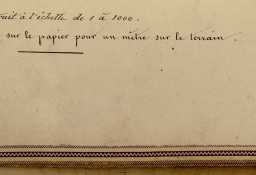 à l'échelle de 1 à 1000.
sur le papier pour un mètre sur le terrain.